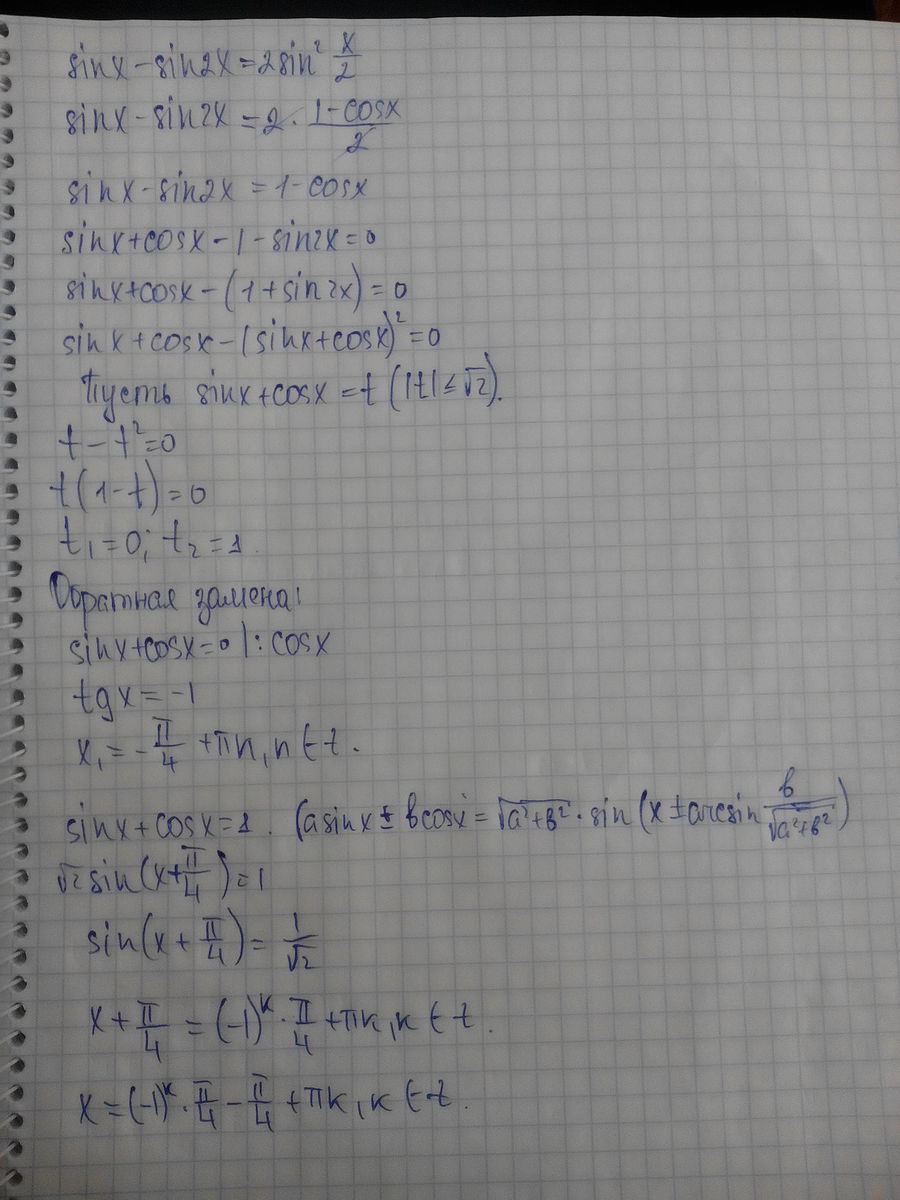 sinx - sin2x = 2sin² x/2
sinx - sin2x = 2 · (1-cosx)/2
sinx - sin2x = 1 - cosx
sinx + cosx - 1 - sin2x = 0
sinx + cosx - (1 + sin2x) = 0
sinx + cosx - (sinx + cosx)² = 0
Пусть sinx + cosx = t (|t| ≤ √2).
t - t² = 0
t(1 - t) = 0
t₁ = 0; t₂ = 1.
Обратная замена:
sinx + cosx = 0 |: cosx
tgx = -1
x₁ = -π/4 + πn, n ∈ Z.
sinx + cosx = 1. (asinx ± bcosx = √(a²+b²) · sin(x ± arcsin b/√(a²+b²))
√2 sin(x + π/4) = 1
sin(x + π/4) = 1/√2
x + π/4 = (-1)ᵏ · π/4 + πk, k ∈ Z.
x = (-1)ᵏ · π/4 - π/4 + πk, k ∈ Z.